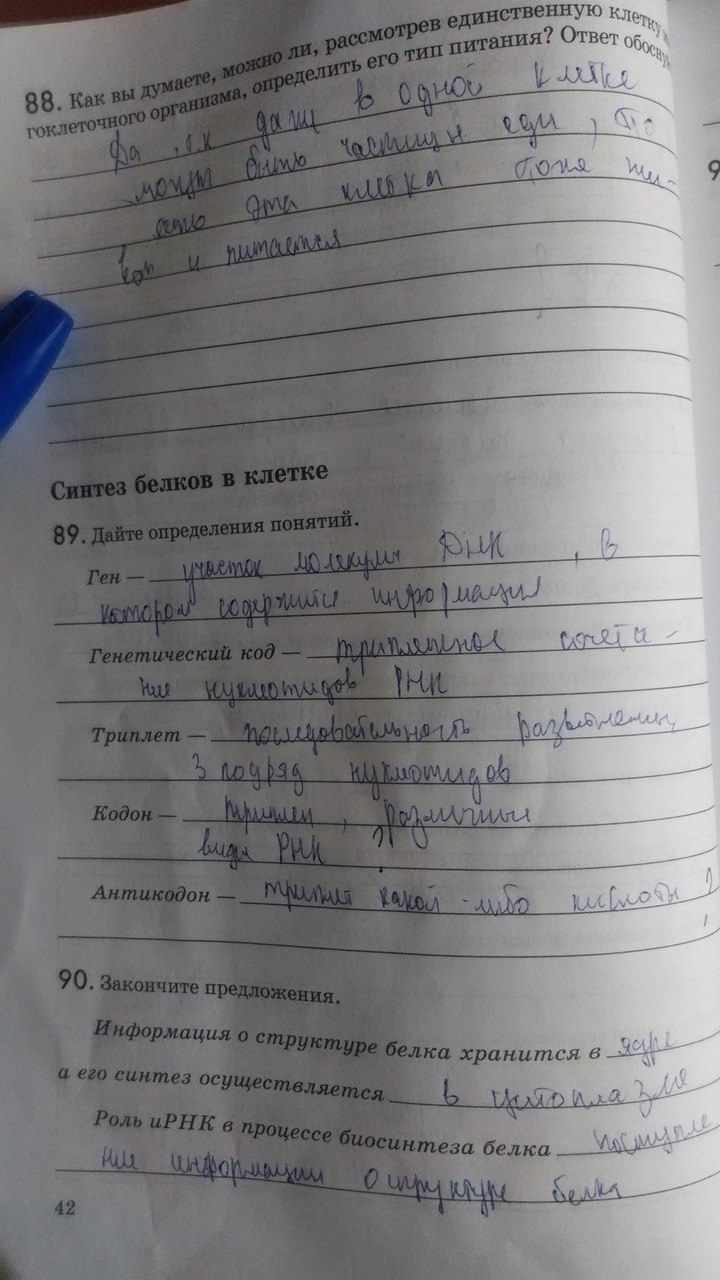 88. Как вы думаете, можно ли, рассмотрев единственную клетку
гоклеточного организма, определить его тип питания? Ответ обосну
Да, т.к даже в одной клетке
могут быть частицы еды, то
есть эта клетка тоже жи-
вая и питается
Синтез белков в клетке
89. Дайте определения понятий.
Ген — участок молекулы ДНК, в
котором содержится информация
Генетический код — триплетное сочета-
ние нуклеотидов РНК
Триплет — последовательность расположения
3 подряд нуклеотидов
Кодон — триплет, различные
виды РНК ?
Антикодон — триплет какой-либо кислоты ?
90. Закончите предложения.
Информация о структуре белка хранится в ядре
а его синтез осуществляется в цитоплазме
Роль иРНК в процессе биосинтеза белка поступле
ние информации о структуре белка
42